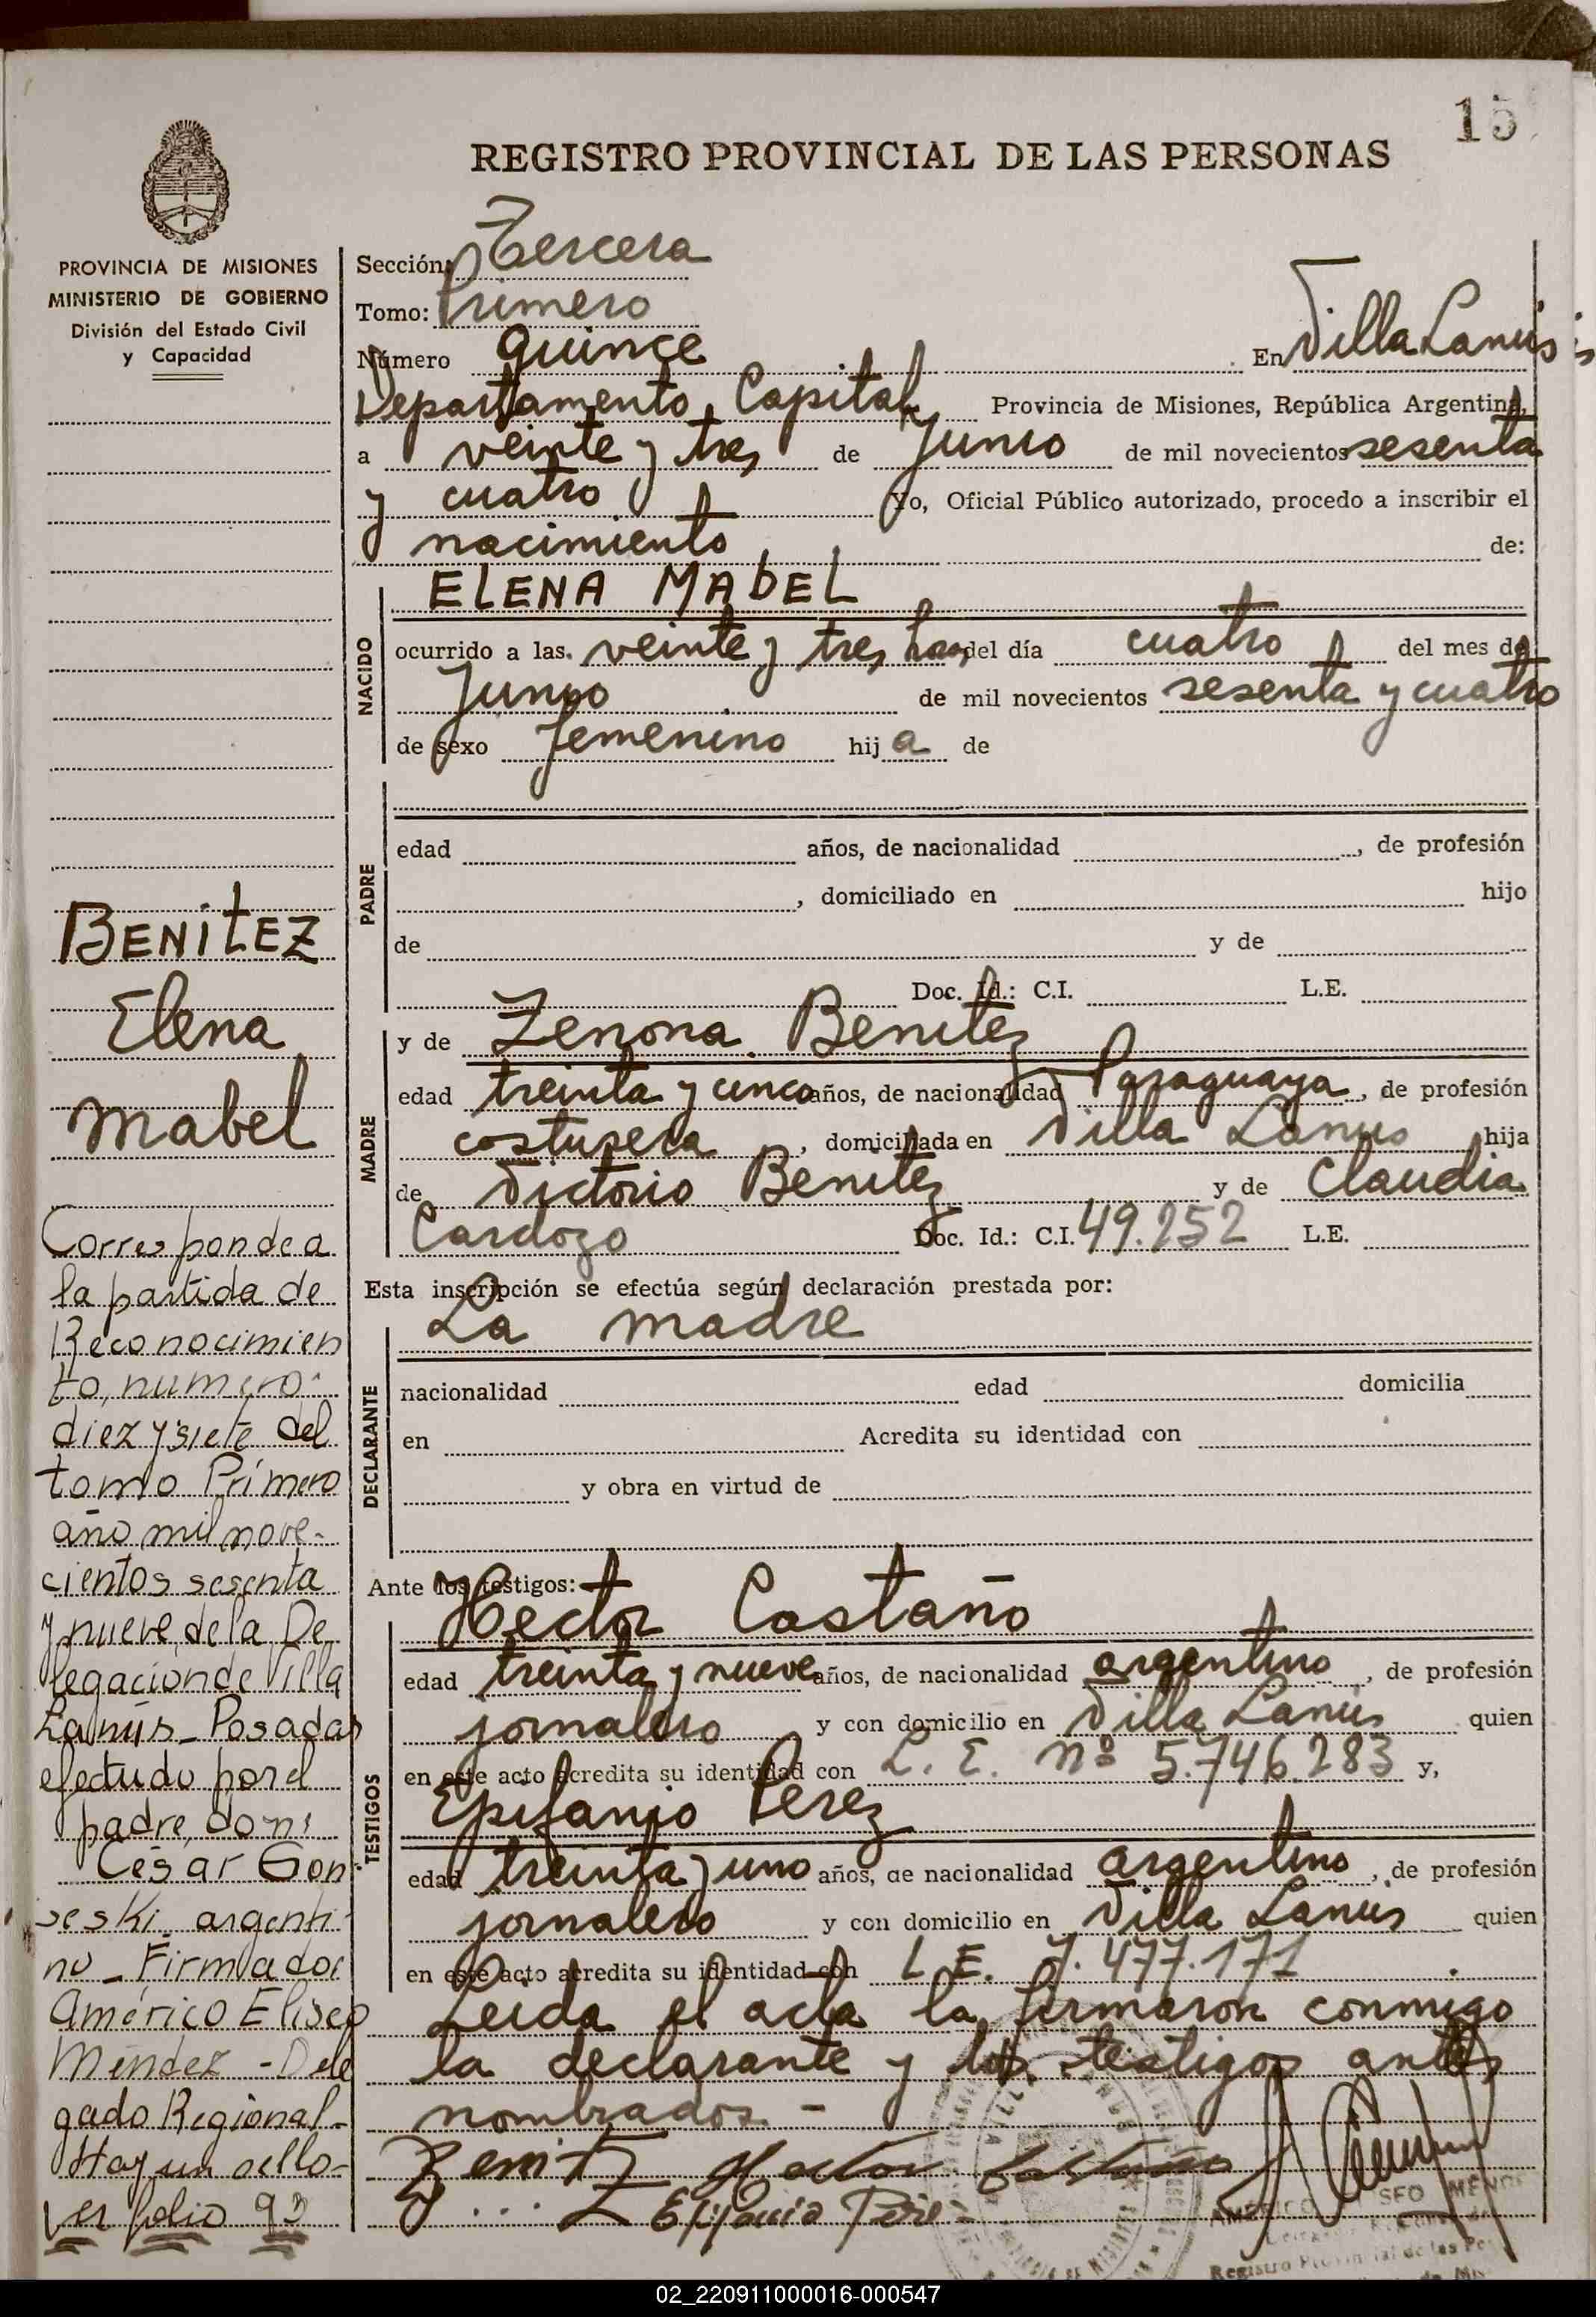 15
REGISTRO PROVINCIAL DE LAS PERSONAS
PROVINCIA DE MISIONES
MINISTERIO DE GOBIERNO
División del Estado Civil
y Capacidad
BENITEZ
Elena
Mabel
Corresponde a
la partida de
Reconocimien
to, numero
diez y siete del
tomo Primero
año mil nove-
cientos sesenta
y nueve, de la De
legación de Villa
Lanús - Posadas
efectudo por el
padre, don:
César Gon
seski argenti-
no - Firmado:
Américo Eliseo
Méndez - Dele
gado Regional -
Hay un sello -
Ver folio 93
Sección: Tercera
Tomo: Primero
Número quince En Villa Lanús
Departamento Capital, Provincia de Misiones, República Argentina,
a veinte y tres de Junio de mil novecientos sesenta
y cuatro Yo, Oficial Público autorizado, procedo a inscribir el
nacimiento de:
NACIDO
ELENA MABEL
ocurrido a las veinte y tres horas del día cuatro del mes de
Junio de mil novecientos sesenta y cuatro
de sexo femenino hija de
PADRE
edad años, de nacionalidad , de profesión
, domiciliado en hijo
de y de
Doc. Id.: C.I. L.E.
MADRE
y de Zenona Benitez
edad treinta y cinco años, de nacionalidad Paraguaya, de profesión
costurera, domiciliada en Villa Lanus hija
de Victorio Benitez y de Claudia
Cardozo Doc. Id.: C.I. 49.252 L.E.
Esta inscripción se efectúa según declaración prestada por:
DECLARANTE
La madre
nacionalidad edad domicilia
en Acredita su identidad con
y obra en virtud de
Ante los testigos:
TESTIGOS
Hector Castaño
edad treinta y nueve años, de nacionalidad argentino, de profesión
jornalero y con domicilio en Villa Lanús quien
en este acto acredita su identidad con L. E. nº 5.746.283 y,
Epifanio Perez
edad treinta y uno años, de nacionalidad argentino, de profesión
jornalero y con domicilio en Villa Lanús quien
en este acto acredita su identidad con L. E. 7.477.171
Leida el acta la firmaron conmigo
la declarante y los testigos antes
nombrados. -
Benitez Hector Castaño
Epifanio Perez
AMERICO ELISEO MENDEZ
Registro Provincial de las Pe
02_220911000016-000547